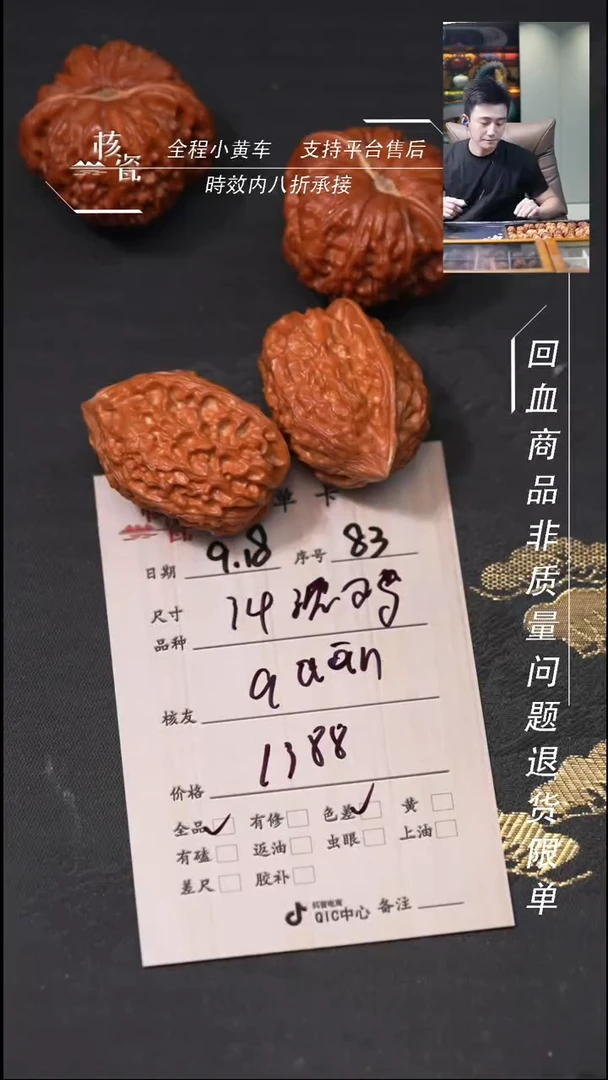 核瓷
全程小黄车 支持平台售后
時效内八折承接
回血商品非质量问题退货限单
单卡
日期 9.18 序号 83
尺寸
品种
核友 q aān
价格 1388
全品 有修 色差 黄
有磕 返油 虫眼 上油
差尺 胶补
抖音电商
QIC中心 备注